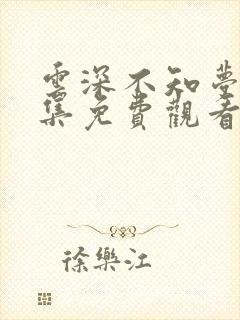 雲深不知夢
集免費觀看
徐樂江